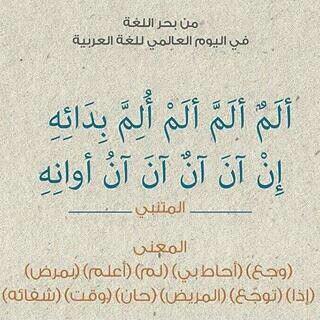 من بحر اللغة
في اليوم العالمي للغة العربية
ألَمٌ ألَمَّ ألَمْ أُلِمَّ بِدَائِهِ
إِنْ آنَ آنٌ آنَ آنُ أوانِهِ
المتنبي
المعنى
(وجع) (أحاط بي) (لم) (أعلم) (بمرض)
(إذا) (توجّع) (المريض) (حان) (وقت) (شفائه)